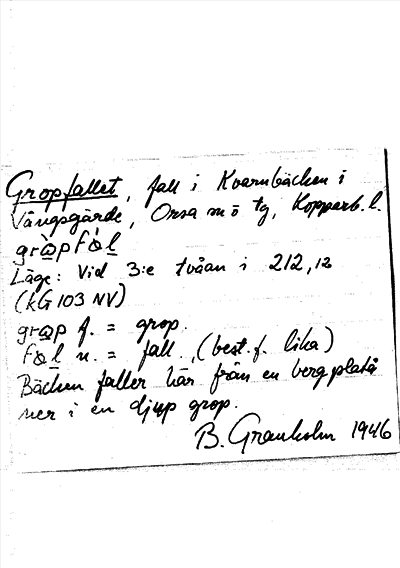 Gropfallet, fall i Kvarnbäcken i
Vångsgärde, Orsa sn ö tg, Kopparb. l.
gròpfàl
Läge: Vid 3:e tvåan i 212,12
(KG 103 NV)
grop f. = grop.
fal n. = fall, (best. f. lika)
Bäcken faller här från en bergplatå
ner i en djup grop.
B. Granholm 1946